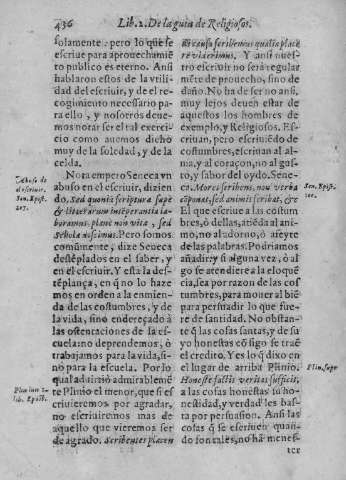 436 Lib. 2. De la guia de Religiosos.
solamente: pero lo que se
escriue para aprouechamiẽ
to publico es eterno. Ansi
hablaron estos de la vtili
dad del escriuir, y de el re
cogimiento necessario pa
ra ello, y nosotros deue-
mos notar ser el tal exerci
cio como auemos dicho
muy de la soledad, y de la
celda.
Nota empero Seneca vn
abuso en el escriuir, dizien
do, Sed quonia scriptura supe
& litterarum intẽperantia la-
boramus, planè non vita, sed
scholæ discimus. Pero somos
comũmente, dize Seneca
destẽplados en el saber, y
en el escriuir. Y esta la des-
tẽplança, en q̃ no lo haze
mos en orden a la enmien-
da de las costumbres, y de
la vida, sino endereçado à
las ostentaciones de la es-
cuela: no deprendemos, ò
trabajamos para la vida, si-
no para la escuela. Por lo
qual aduirtiò admirablemẽ
te Plinio el menor, que si es
criuieremos por agradar,
no escriuiremos mas de
aquello que vieremos ser
de agrado. Scribentes placen
Abuso de
el escriuir.
Sen. Epist.
107.
Plin. iun. in
lib. Epist.
di causa scribemus qualia place
re viderimus. Y ansi nues-
tro escriuir no será regular
mẽte de prouecho, sino de
daño. No ha de ser no ansi,
muy lejos deuen estar de
aquestos los hombres de
exemplo, y Religiosos. Es-
criuan, pero escriuiẽdo de
costumbres, escriuan al al-
ma, y al coraçon, no al gus-
to, y sabor del oydo. Sene-
ca. Mores scribens, non verba
cõponat, sed animis scribat, &c
El que escriue a las costum
bres, ò dellas, atiẽda al ani-
mo, no al adorno, ò aſeyte
de las palabras. Podriamos
añadir, y si alguna vez, ò al
go se atendiere a la eloquẽ
cia, sea por razon de las cos
tumbres, para mouer al biẽ
para persuadir lo que fue-
re de santidad. No obstan-
te q̃ las cosas santas, y de su
yo honestas cõsigo se traẽ
el credito. Y es lo q̃ dixo en
el lugar de arriba Plinio.
Honestè factis veritas sufficit,
a las cosas honestas su ho-
nestidad, y verdad les bas-
ta por persuasion. Ansi las
cosas q̃ se escriuen quan-
do son tales, no hã menes-
ter
Sen. Epist.
Plin. supr